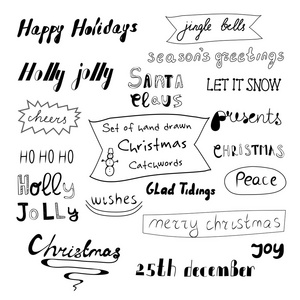 Happy Holidays
jingle bells
season's greetings
Holly jolly
SANTA
CLAUS
LET IT SNOW
cheers
Presents
Set of hand drawn
Christmas
Catchwords
HO HO HO
CHRISTMAS
HOLLY
JOLLY
wishes
GLad Tidings
Peace
merry christmas
Christmas
JOY
25th december